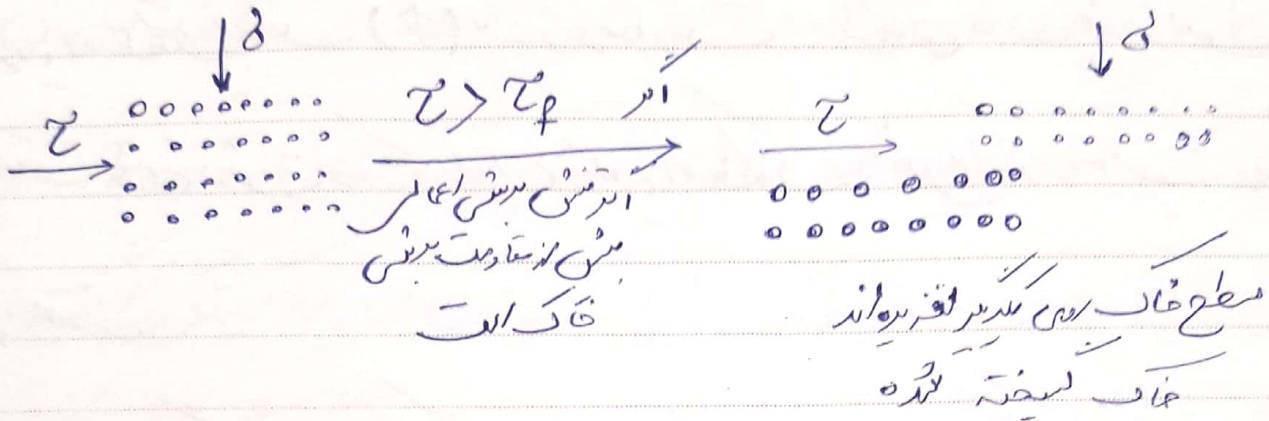 σ
σ
τ
τ > τf اگر
τ
اگر تنش برشی اعمالی
بیش از مقاومت برشی
خاک است
سطح خاک روی یکدیگر لغزیده‌اند
خاک گسیخته شده